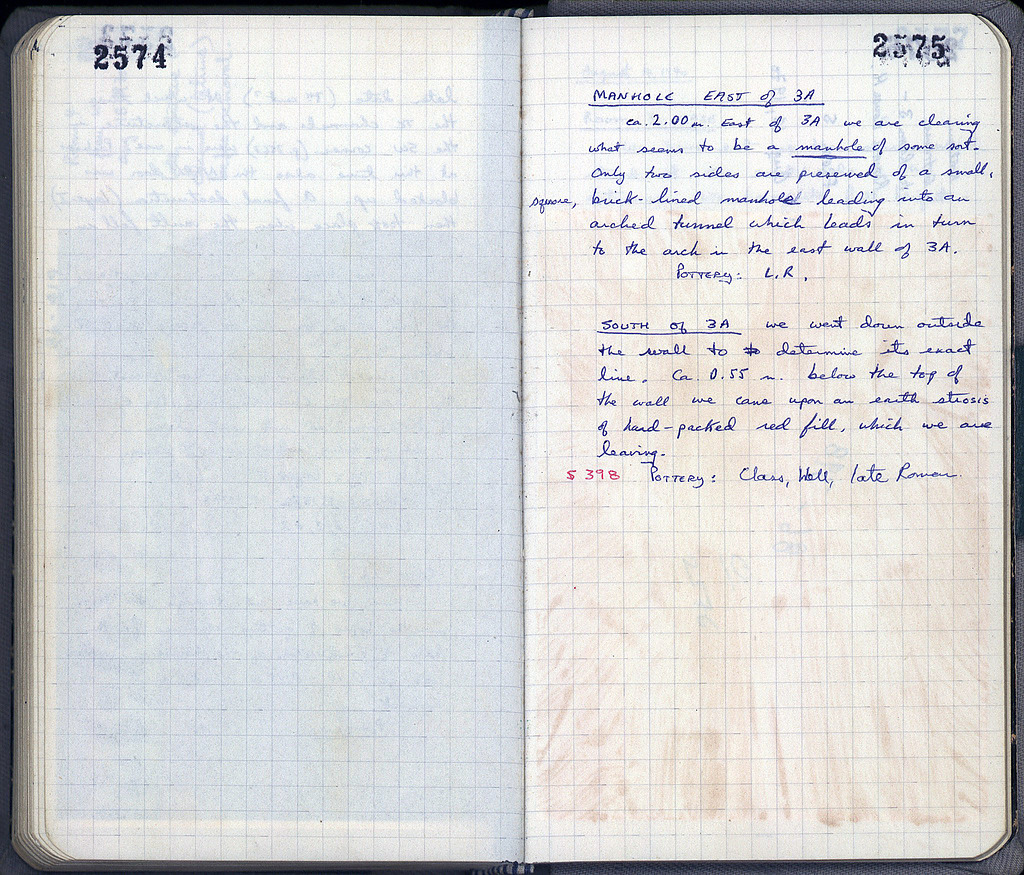 2574
2575
MANHOLE EAST of 3A
ca. 2.00 m. East of 3A we are clearing
what seems to be a manhole of some sort.
Only two sides are preserved of a small,
square, brick-lined manhole leading into an
arched tunnel which leads in turn
to the arch in the east wall of 3A.
POTTERY: L.R.
SOUTH of 3A we went down outside
the wall to determine its exact
line. Ca. 0.55 m. below the top of
the wall we came upon an earth strosis
of hard-packed red fill, which we are
leaving.
S 398 POTTERY: Class, Hell, late Roman.